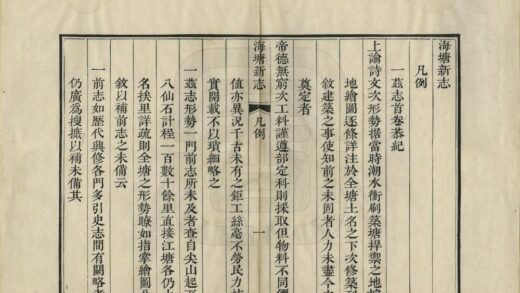 海塘新志
凡例
一茲志首卷恭紀
上諭詩文次形勢据當時潮水衝刷築塘捍禦之地按
地繪圖逐條詳注於全塘土名之下次修築
敘建築之事使知前之未固者人力未盡今
奠定者
帝德無窮次工料謹遵部定科則採取但物料不同價
海塘新志 凡例 一
值亦異況千古未有之鉅工絲毫不勞民力
實開載不以瑣細略之
一茲志形勢一門前志所未及者查自尖山起
八仙石計程一百數十餘里直接江塘各仍土
名挨里詳疏則全塘之形勢瞭如指掌繪圖
敘以補前志之未備云
一前志如歷代興修各門多引史志間有闕略者
仍廣為搜摭以補未備其